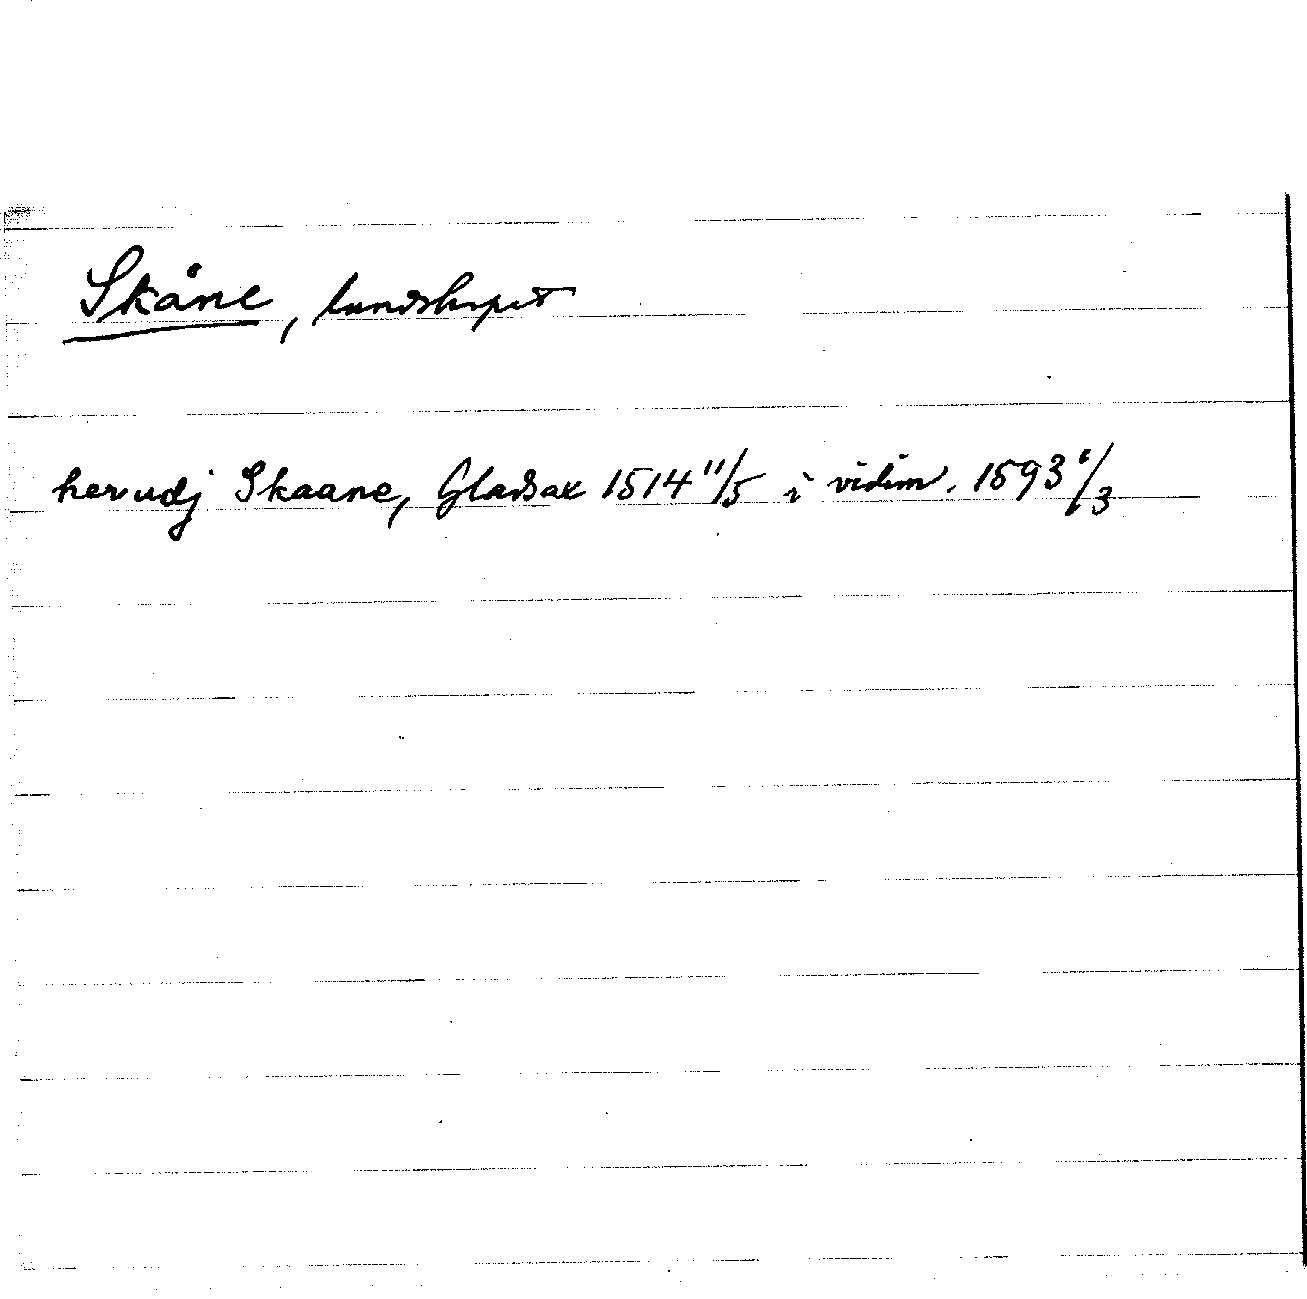 Skåne, landskapet
her udj Skaane, Gladsax 1514 11/5 i vidim. 1593 6/3